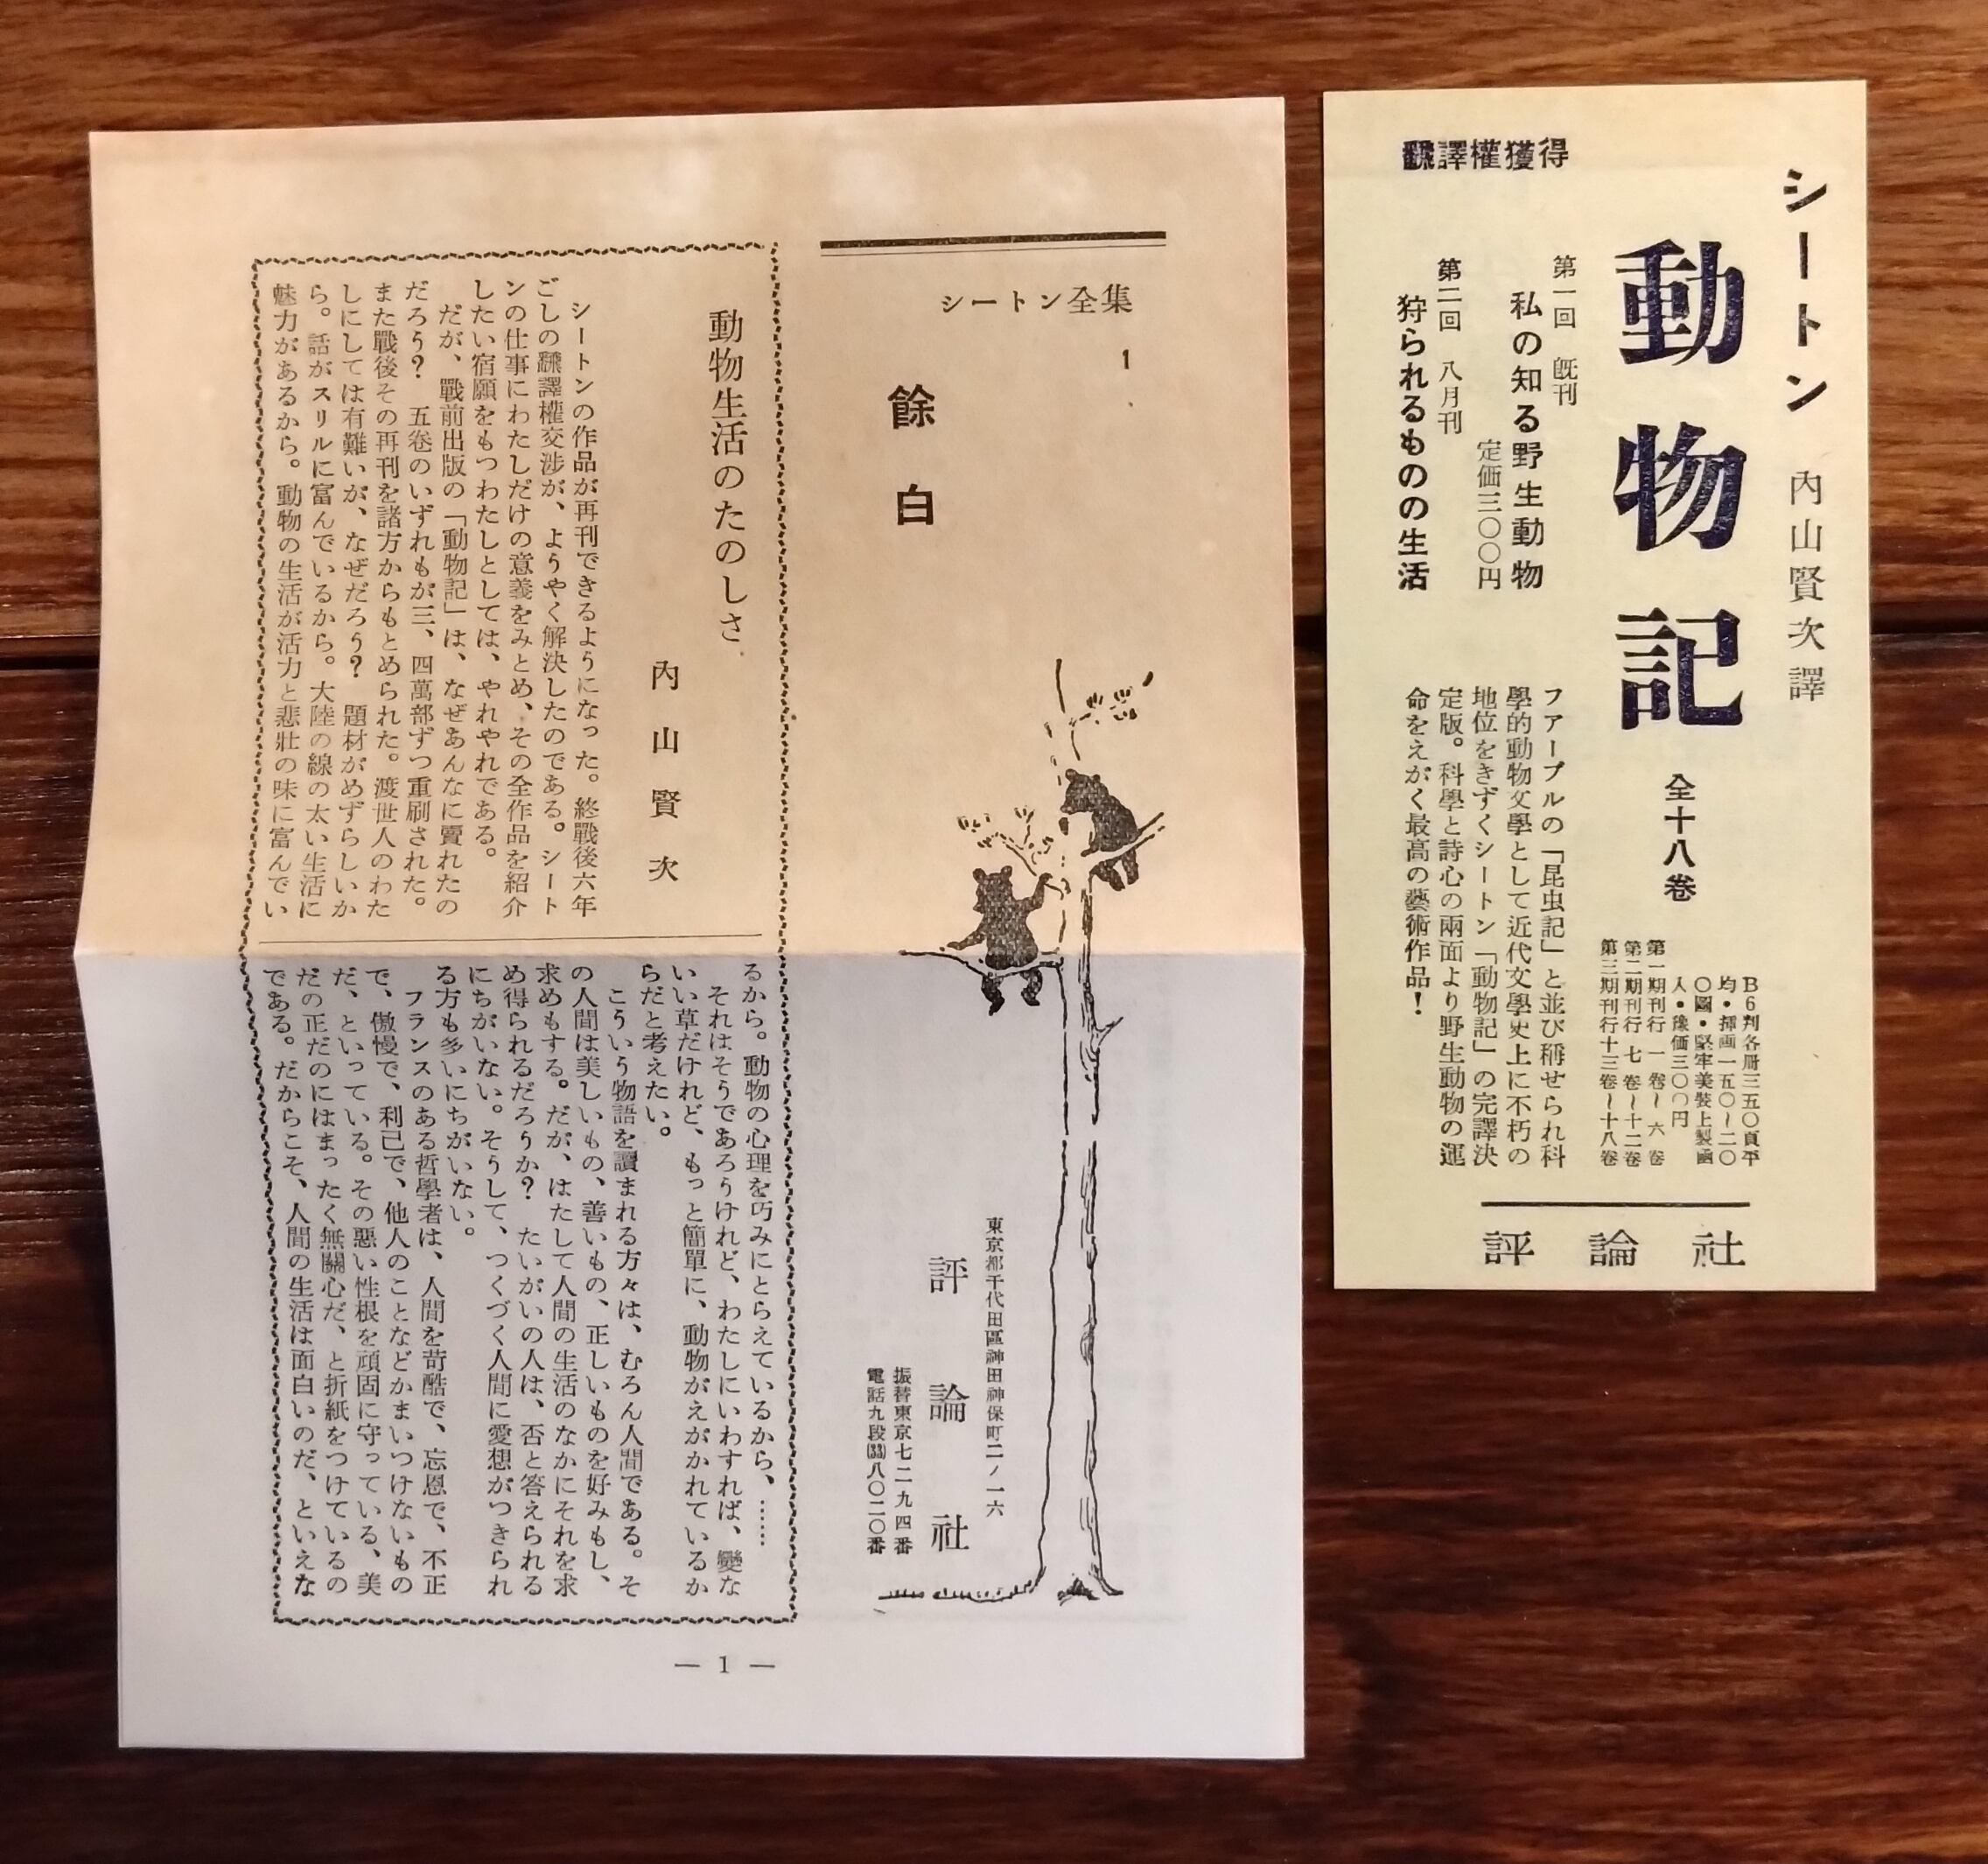 シートン全集
1
餘白
東京都千代田區神田神保町二ノ一六
評論社
振替東京七二九四番
電話九段(33)八〇二〇番
動物生活のたのしさ
內山賢次
シートンの作品が再刊できるようになった。終戰後六年
ごしの飜譯權交渉が、ようやく解決したのである。シート
ンの仕事にわたしだけの意義をみとめ、その全作品を紹介
したい宿願をもつわたしとしては、やれやれである。
だが、戰前出版の「動物記」は、なぜあんなに賣れたの
だろう？　五卷のいずれもが三、四萬部ずつ重刷された。
また戰後その再刊を諸方からもとめられた。渡世人のわた
しにしては有難いが、なぜだろう？　題材がめずらしいか
ら。話がスリルに富んでいるから。大陸の線の太い生活に
魅力があるから。動物の生活が活力と悲壯の味に富んでい
るから。動物の心理を巧みにとらえているから、……
それはそうであろうけれど、わたしにいわすれば、變な
いい草だけれど、もっと簡單に、動物がえがかれているか
らだと考えたい。
こういう物語を讀まれる方々は、むろん人間である。そ
の人間は美しいもの、善いもの、正しいものを好みもし、
求めもする。だが、はたして人間の生活のなかにそれを求
め得られるだろうか？　たいがいの人は、否と答えられる
にちがいない。そうして、つくづく人間に愛想がつきられ
る方も多いにちがいない。
フランスのある哲學者は、人間を苛酷で、忘恩で、不正
で、傲慢で、利己で、他人のことなどかまいつけないもの
だ、といっている。その悪い性根を頑固に守っている、美
だの正だのにはまったく無關心だ、と折紙をつけているの
である。だからこそ、人間の生活は面白いのだ、といえな
— 1 —
シートン　內山賢次譯
動物記　全十八卷
B6判各冊三五〇頁平
均・挿画一五〇〜二〇
〇圖・堅牢美裝上製凾
入・豫価三〇〇円
第一期刊行　一卷〜六卷
第二期刊行　七卷〜十二卷
第三期刊行十三卷〜十八卷
飜譯權獲得
第一回　旣刊
私の知る野生動物
定価三〇〇円
第二回　八月刊
狩られるものの生活
フアーブルの「昆虫記」と並び稱せられ科
學的動物文學として近代文學史上に不朽の
地位をきずくシートン「動物記」の完譯決
定版。科學と詩心の兩面より野生動物の運
命をえがく最高の藝術作品！
評論社